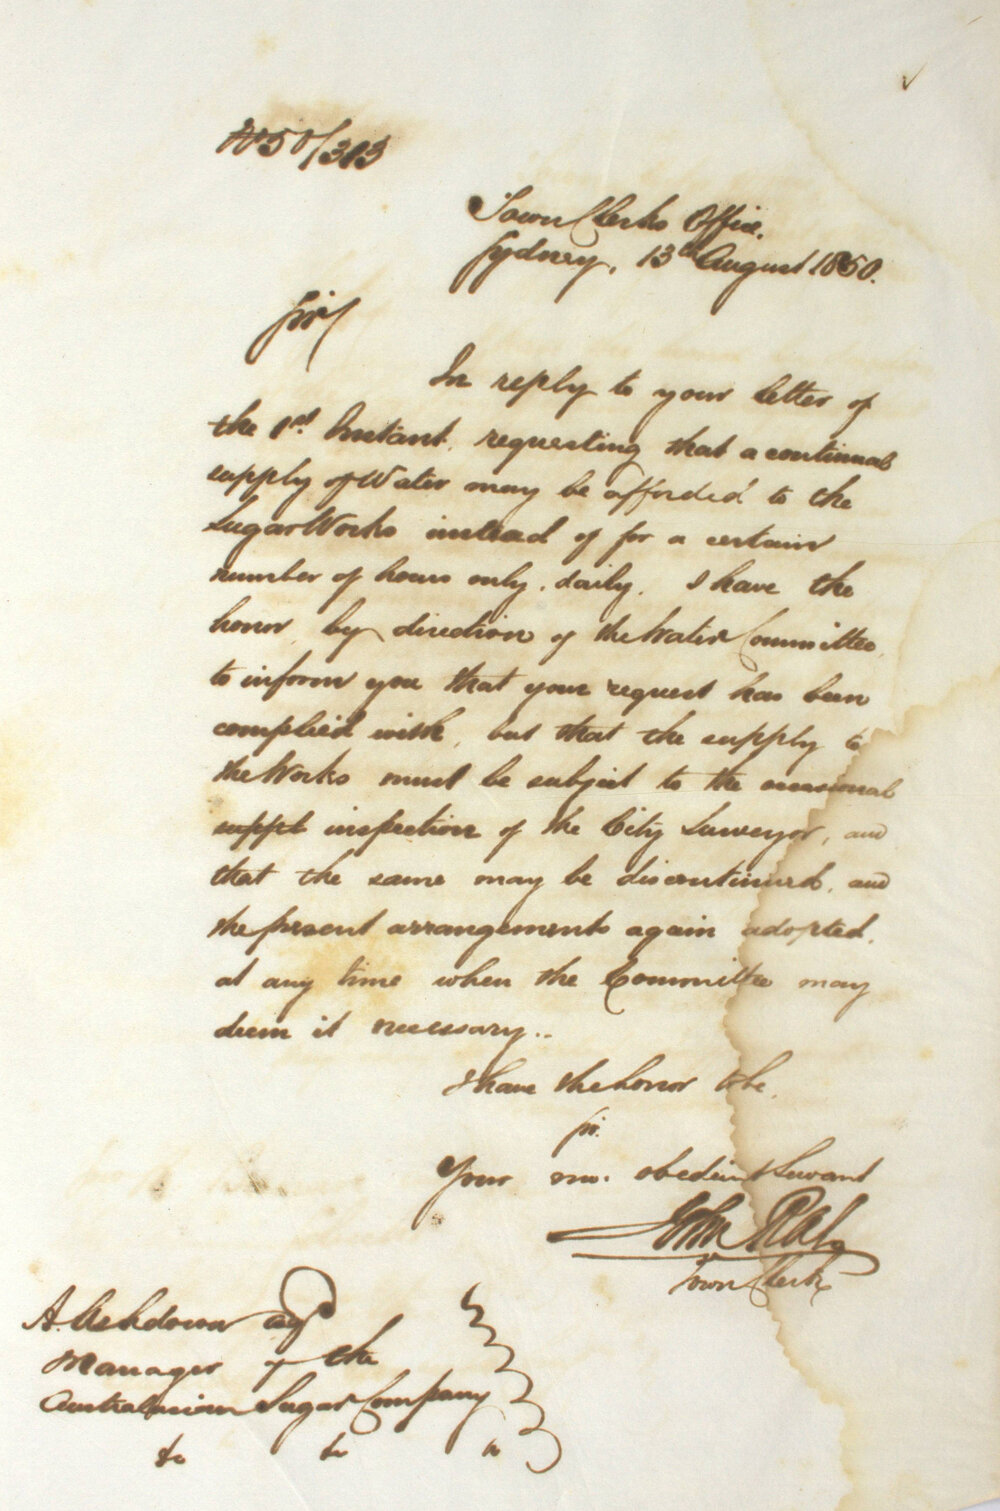 No 50/313
Town Clerks Office.
Sydney, 13th August 1850.
Sir
In reply to your letter of
the 1st. Instant, requesting that a continual
supply of Water may be afforded to the
Sugar Works instead of for a certain
number of hours only, daily, I have the
honor, by direction of the Water Committee,
to inform you that your request has been
complied with, but that the supply to
the Works must be subject to the occasional
suppt inspection of the City Surveyor, and
that the same may be discontinued, and
the present arrangements again adopted,
at any time when the Committee may
deem it necessary..
I have the honor to be,
Sir.
Your mo. obedient Servant
John
Town Clerk
A. Ashdown Esqr
Manager of the
Australasian Sugar Company
&c &c &c